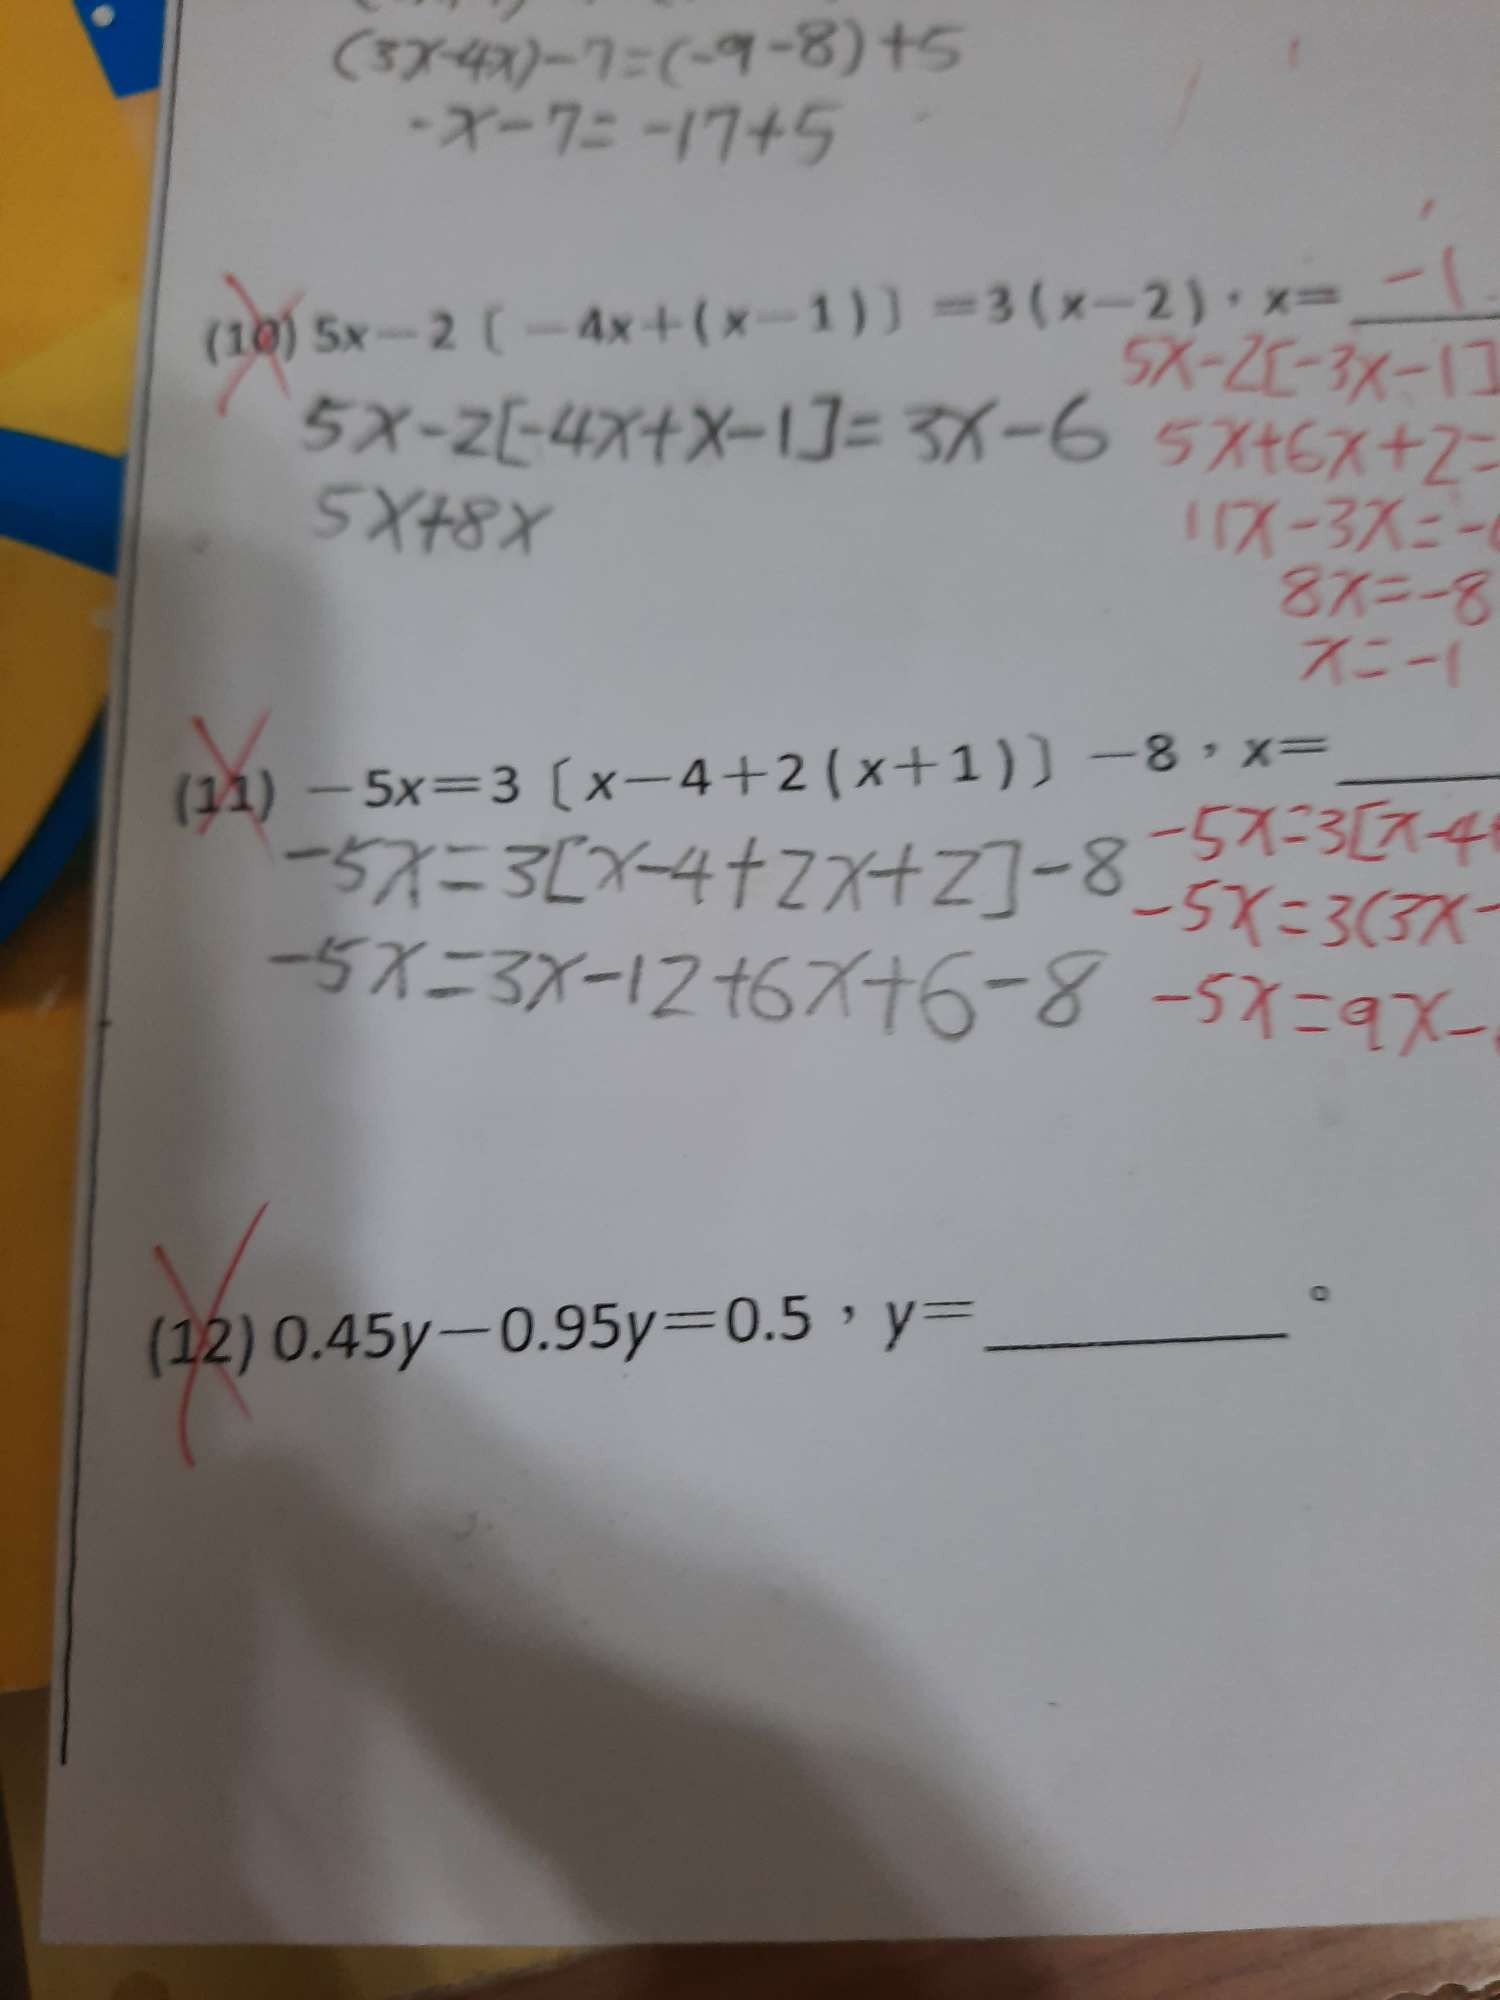 (3x-4x)-7=(-9-8)+5
-x-7=-17+5
(10) 5x－2〔－4x+(x－1)〕＝3(x－2)，x＝ -1
5x-2[-3x-1]
5x-2[-4x+x-1]=3x-6
5x+6x+2=
5x+8x
11x-3x=-
8x=-8
x=-1
(11) －5x＝3〔x－4＋2(x＋1)〕－8，x＝
-5x=3[x-4
-5x=3[x-4+2x+2]-8
-5x=3(3x-
-5x=3x-12+6x+6-8
-5x=9x-
(12) 0.45y－0.95y＝0.5，y＝ 。